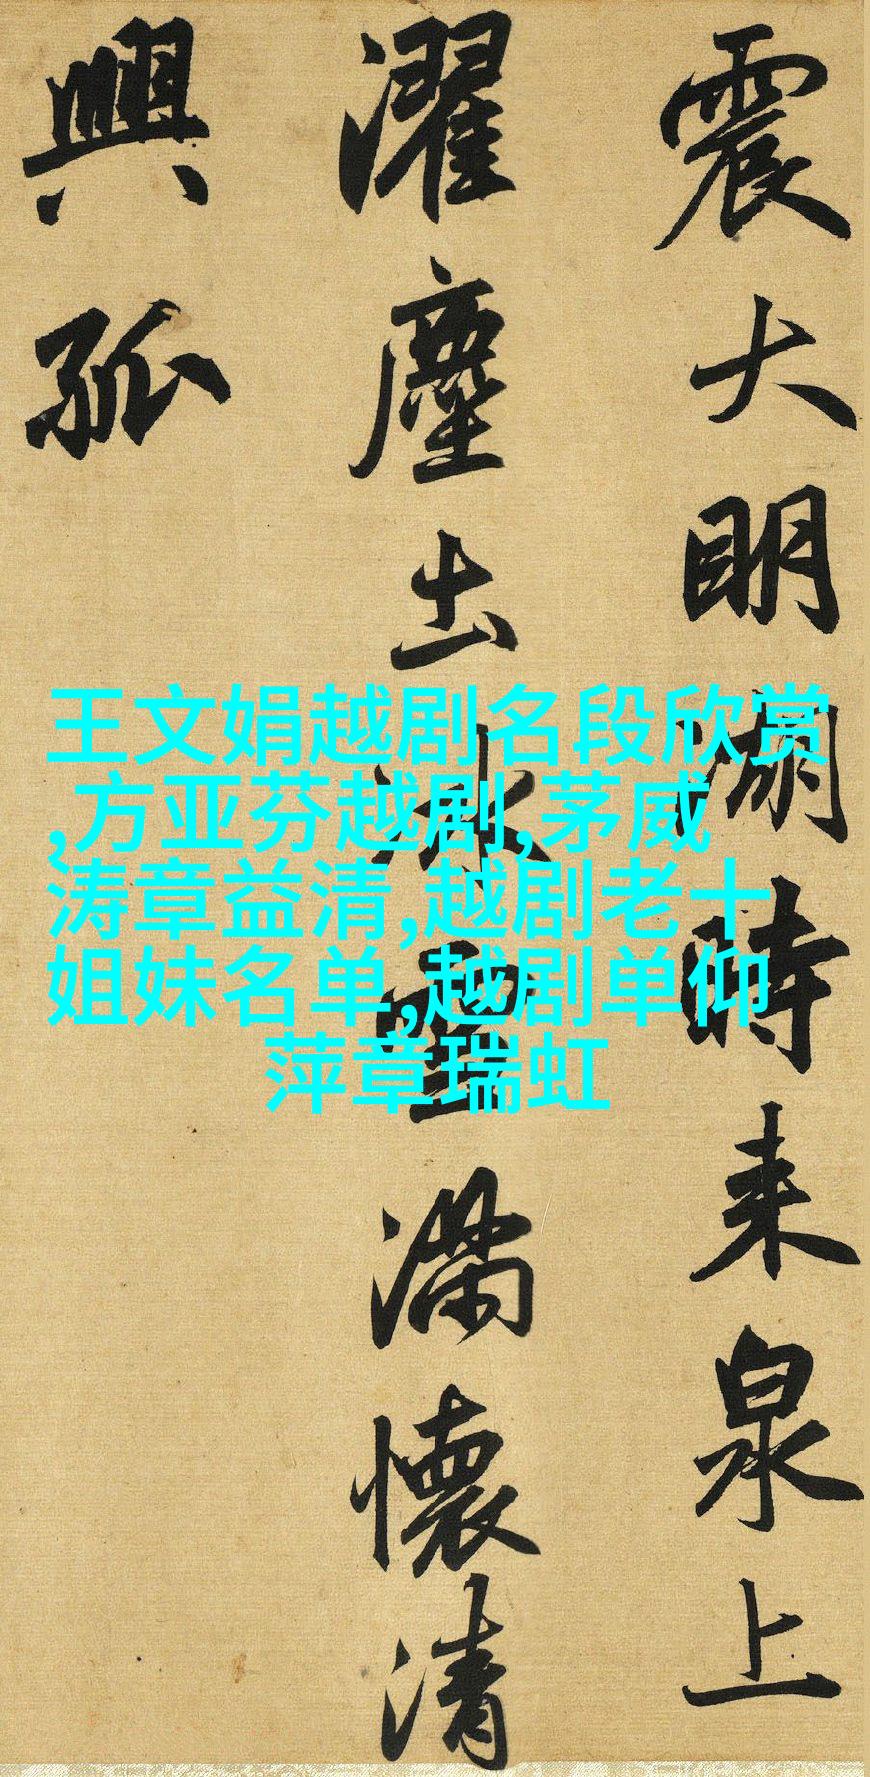 震大明湖時来泉上
濯塵土冰雪滿懷清
興孤
王文娟越剧名段欣赏
,方亚芬越剧,茅威
涛章益清,越剧老十
姐妹名单,越剧单仰
萍章瑞虹